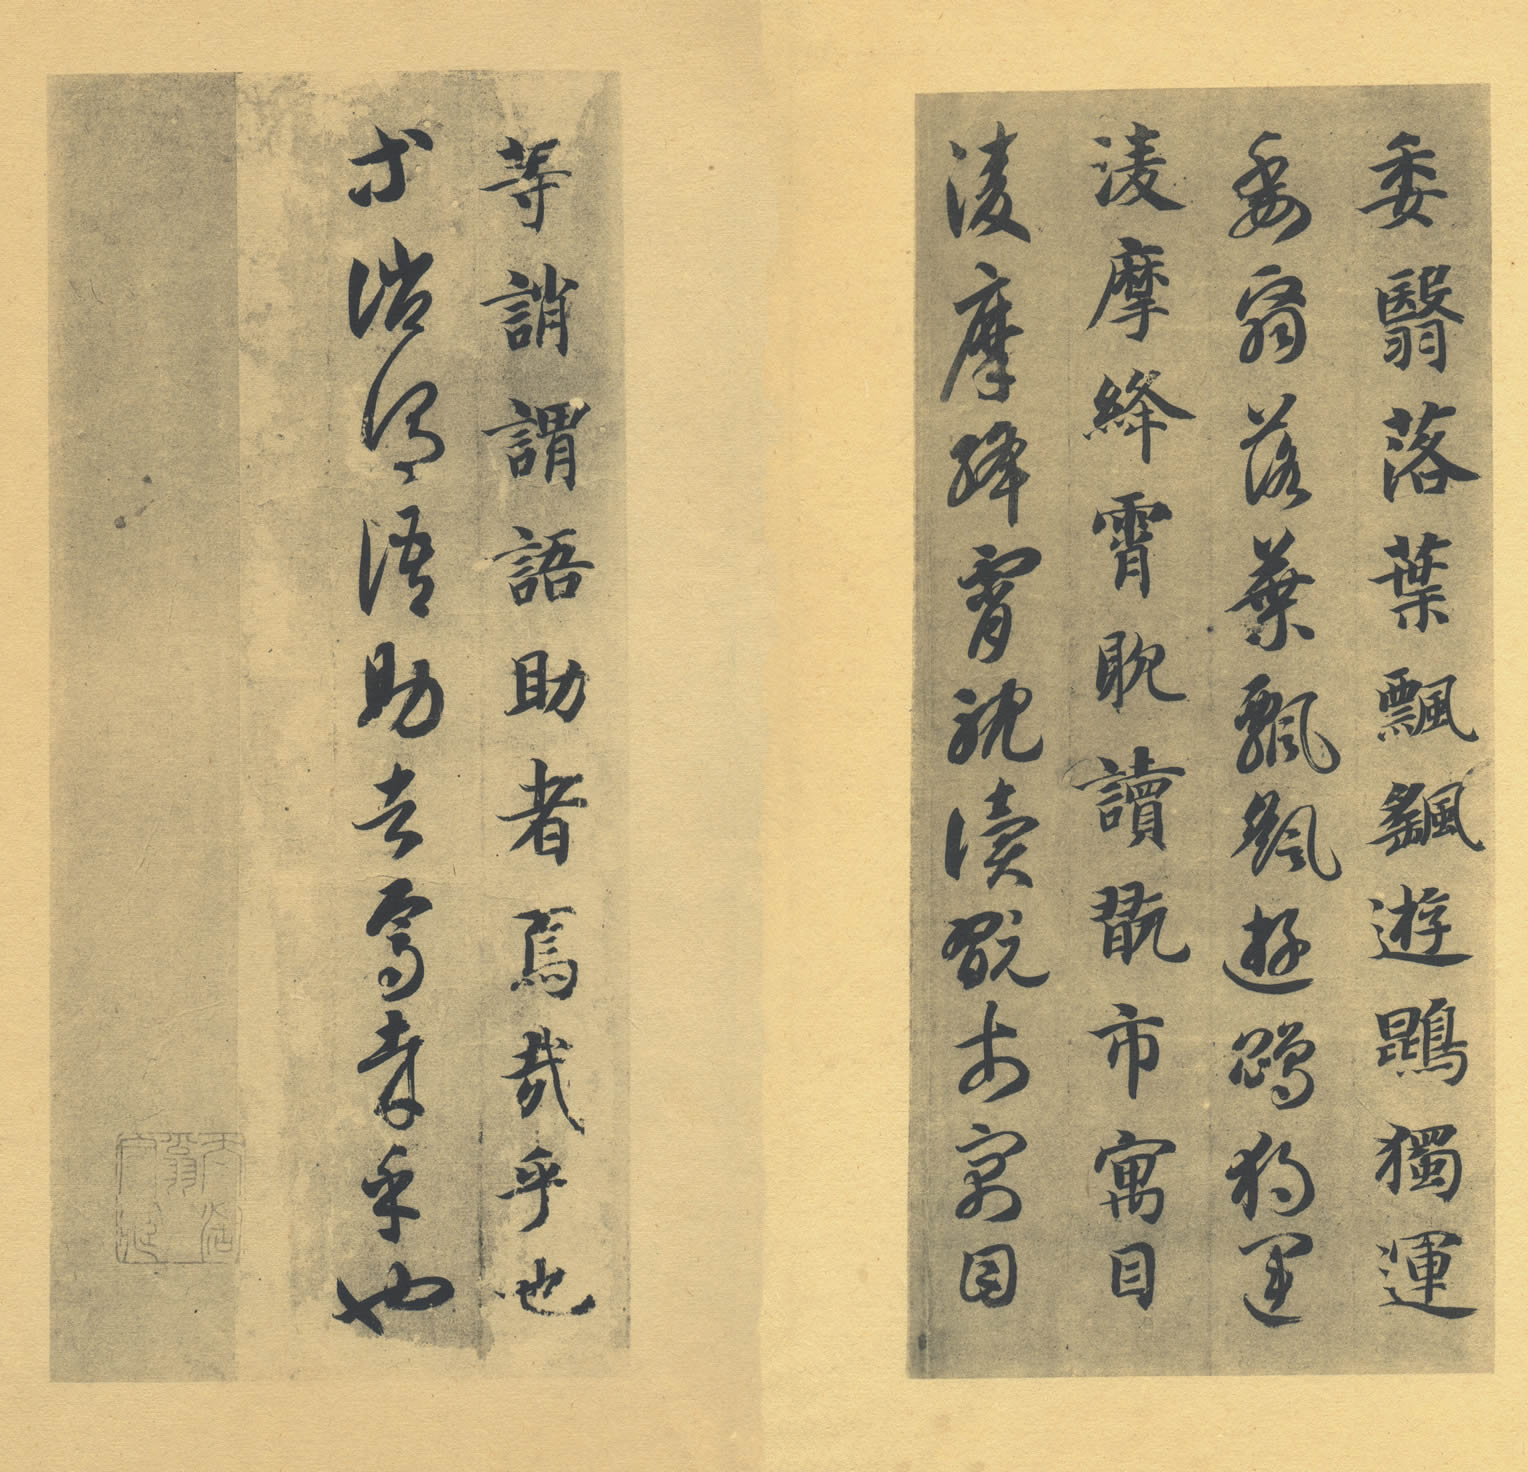 委翳落葉飄颻遊鵾獨運
委翳落葉飄颻遊鵾獨運
淩摩絳霄耽讀翫市寓目
淩摩絳霄耽讀翫市寓目
等誚謂語助者焉哉乎也
等誚謂語助者焉哉乎也